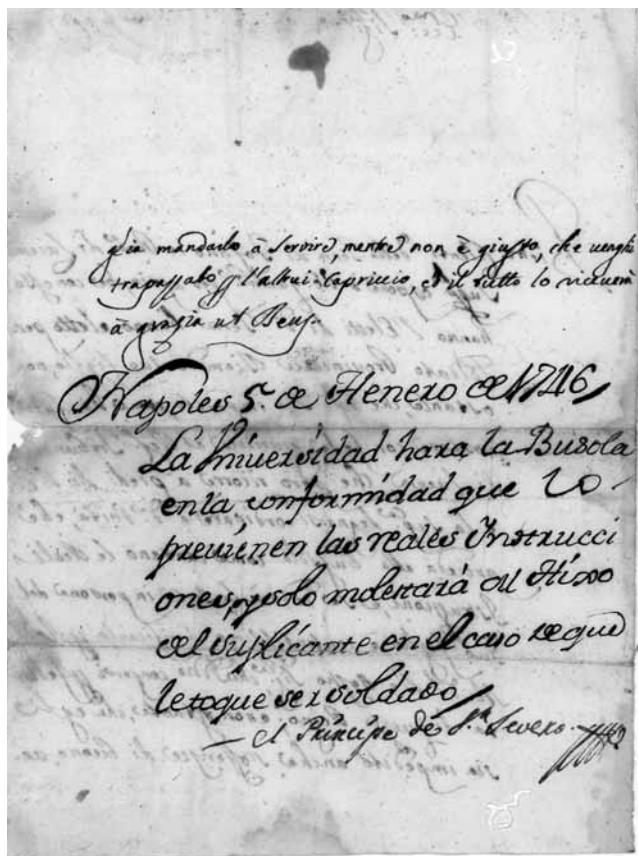 sia mandarlo, à servire, mentre non è giusto, che venghi
trapassato p l'altrui Capriccio, ed il tutto lo riceverà
à grazia ut Deus.
Napoles 5. de Henero de 1746
La Vniversidad hara la Busola
en la conformidad que lo
previenen las reales Instrucci
ones, y solo molestará al Hixo
del suplicante en el caso de que
le toque ser soldado
el Principe de Sn. Severo